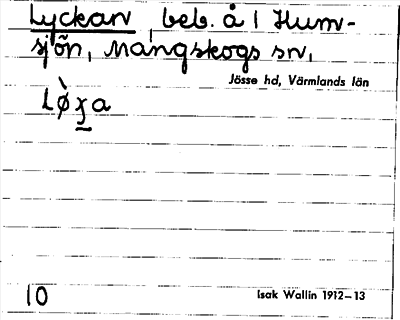 Lyckan, beb. å 1 Hum-
sjön, Mangskogs sn,
Jösse hd, Värmlands län
10
Isak Wallin 1912–13